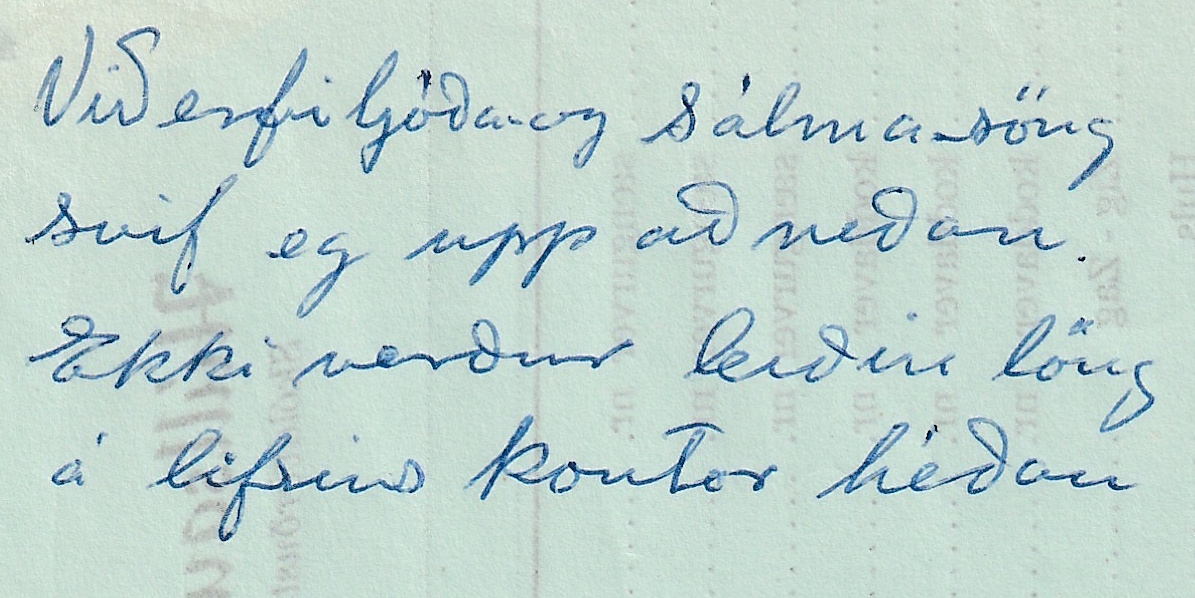 Við erfiljóða-og sálma-söng
svif eg upp að neðan.
Ekki verður leiðin löng
á lífsins kontor héðan